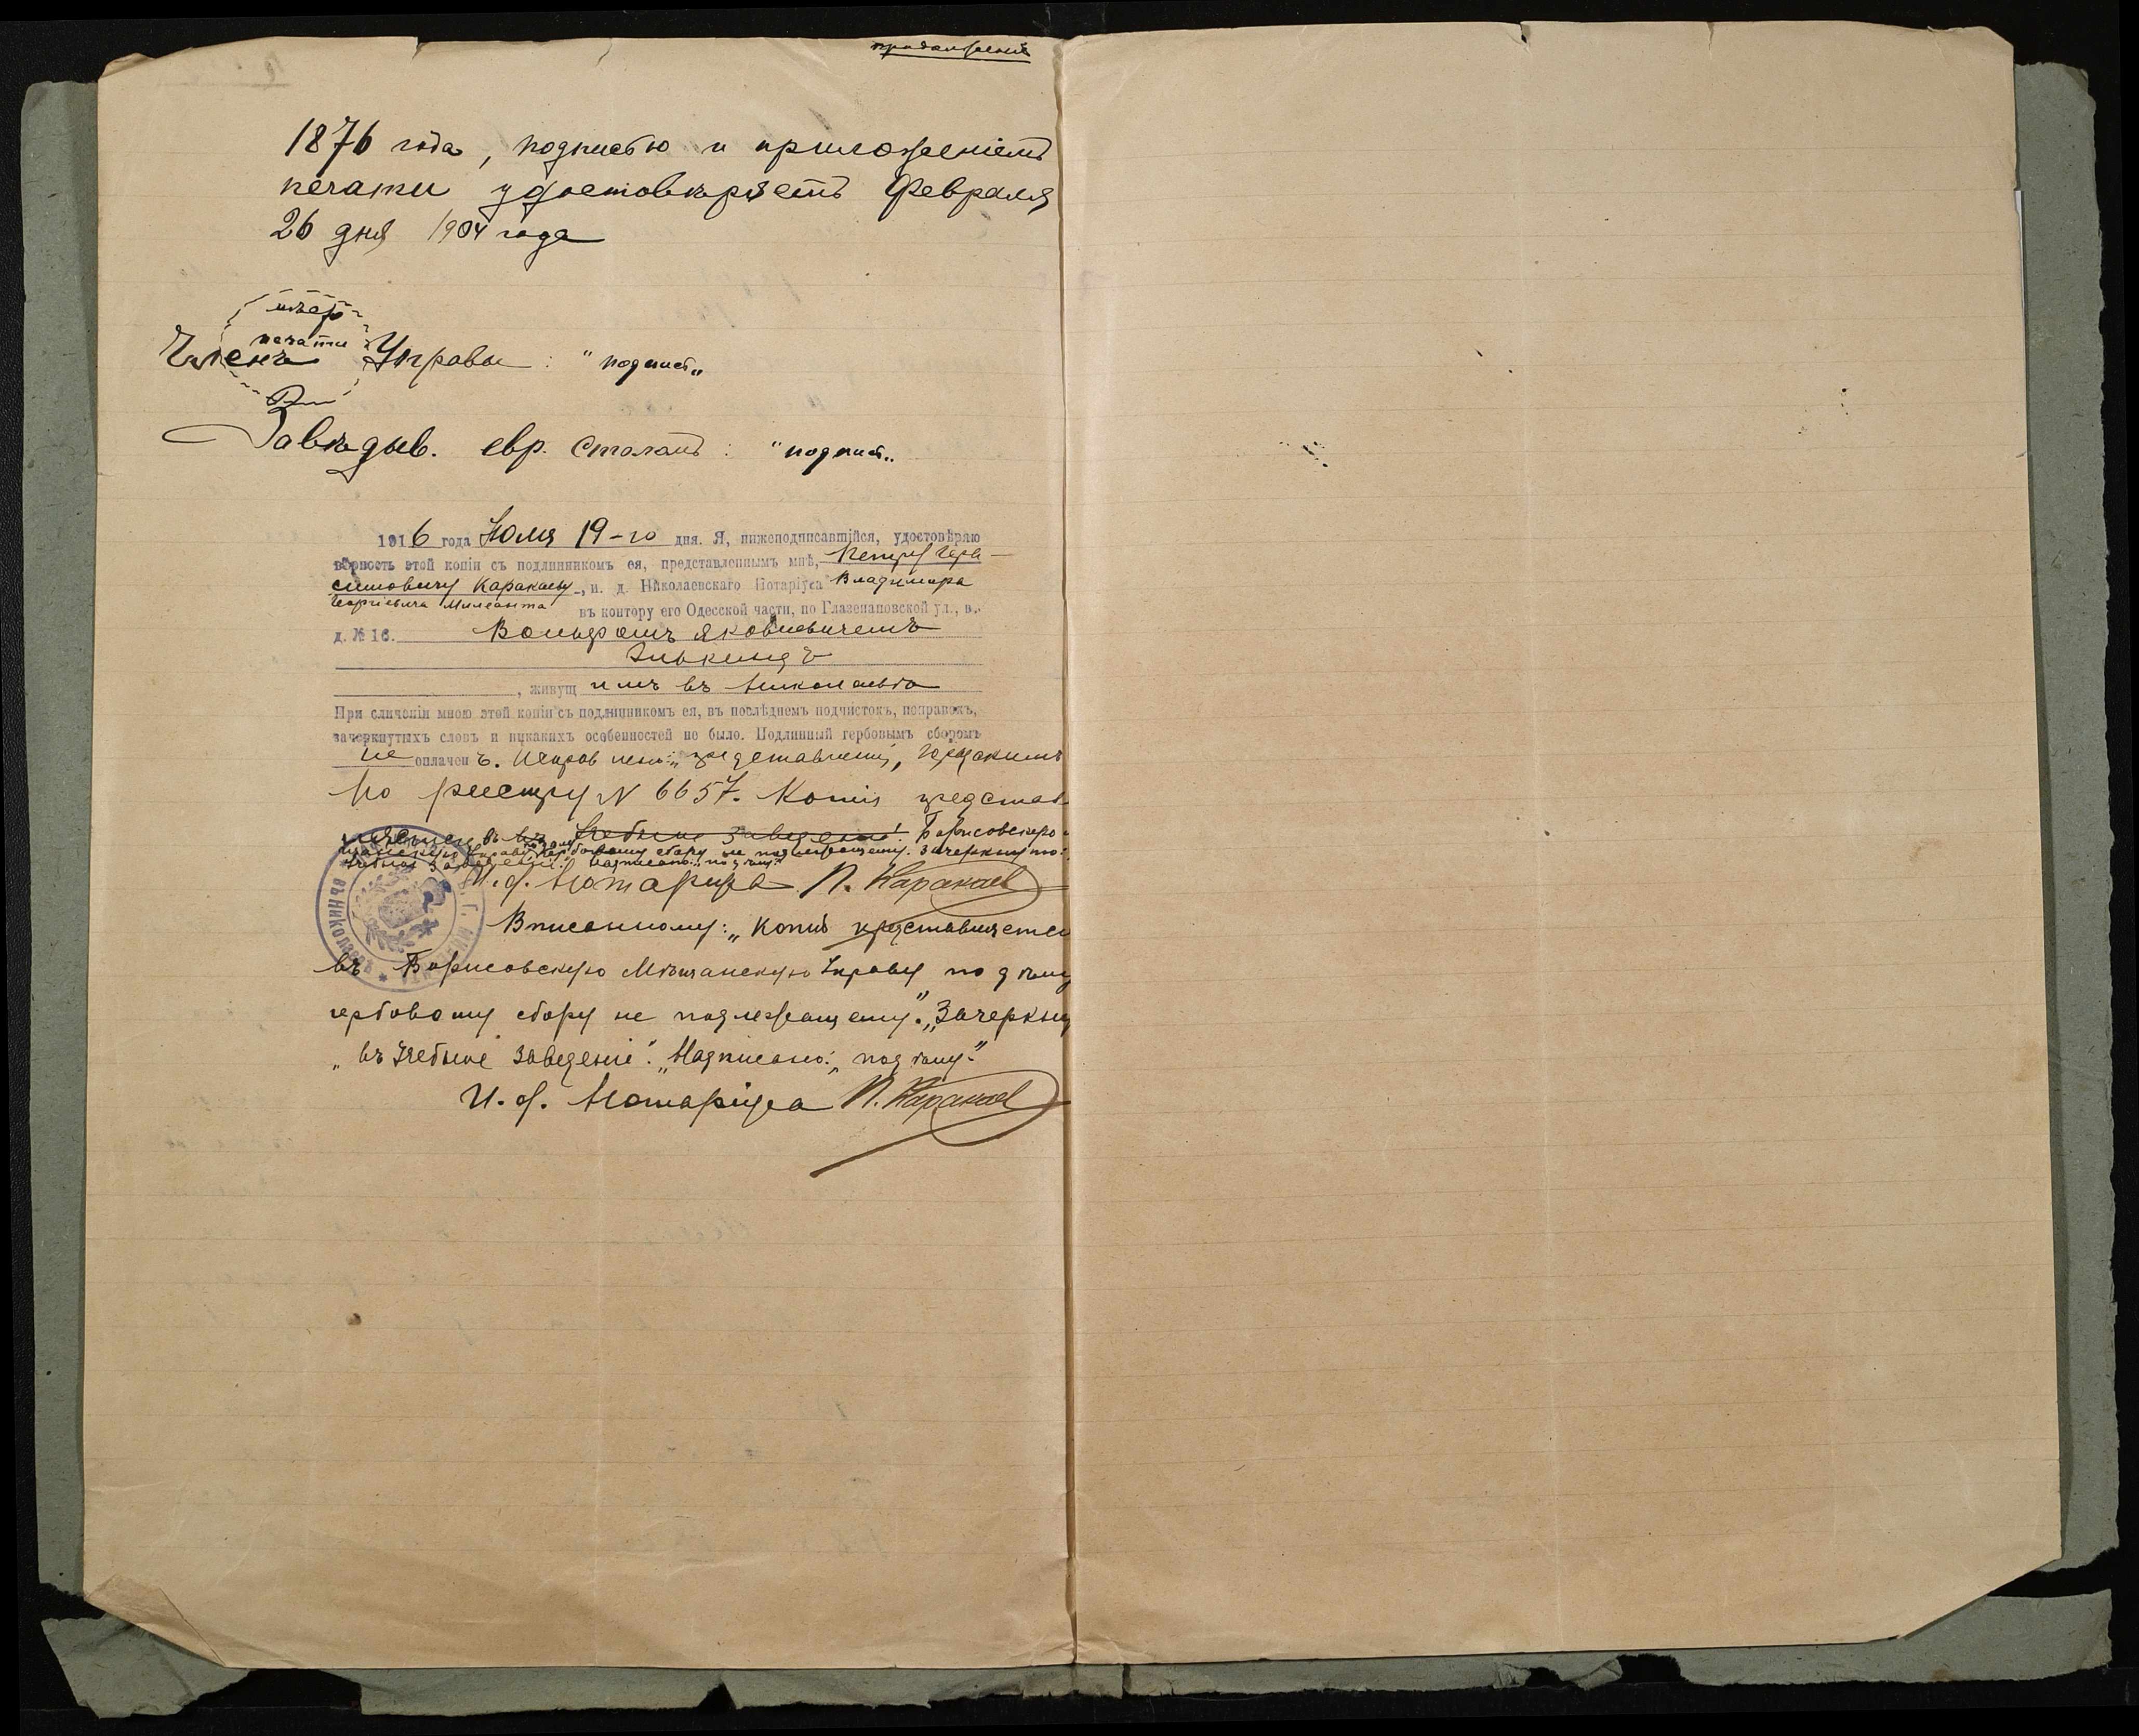 1876 года, подписью и приложеніемъ
печати удостовѣряетъ Февраля
26 дня 1904 года
печати
Членъ Управы: "подпись"
Завѣдыв. евр. столомъ: "подпись"
1916 года Іюля 19-го дня. Я, нижеподписавшійся, удостовѣряю
вѣрность этой копіи съ подлинникомъ ея, представленнымъ мнѣ, Петру Гера-
симовичу Каракаеву, и. д. Николаевскаго Нотаріуса Владимира
Георгіевича въ контору его Одесской части, по Глазенаповской ул., в.
д. № 16. Вольфомъ Яковлевичемъ
Элькиндъ
, живущимъ въ Николаевѣ
При сличеніи мною этой копіи съ подлинникомъ ея, въ послѣднемъ подчистокъ, поправокъ,
зачеркнутыхъ словъ и никакихъ особенностей не было. Подлинный гербовымъ сборомъ
не оплаченъ.
По реестру N 6657. Копія представ
въ учебное заведеніе. Борисовскую
гербовому сбору не подлежащему. зачеркнуто:
учебное заведеніе. Надписано: "подъ
И. д. Нотаріуса П. Каракаев
Вписанному: "Копія представляется
въ Борисовскую Мѣщанскую Управу по дѣлу
гербовому сбору не подлежащему". "Зачеркну
"въ учебное заведеніе". "Надписано:
И. д. Нотаріуса П. Каракаев